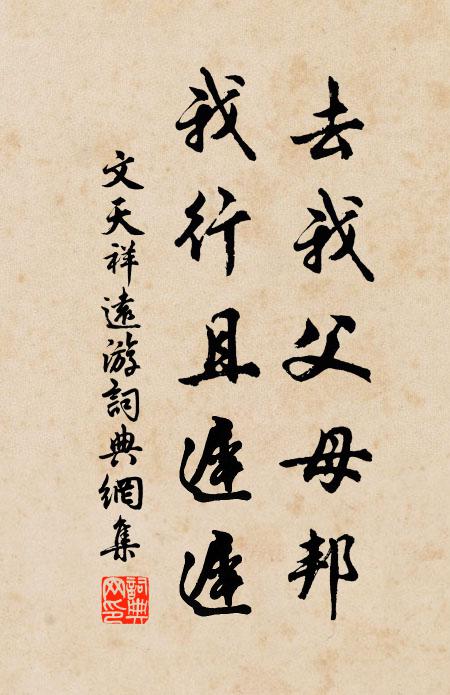 去我父母邦
我行且遲遲
文天祥遠游詞典網集
詞典網印